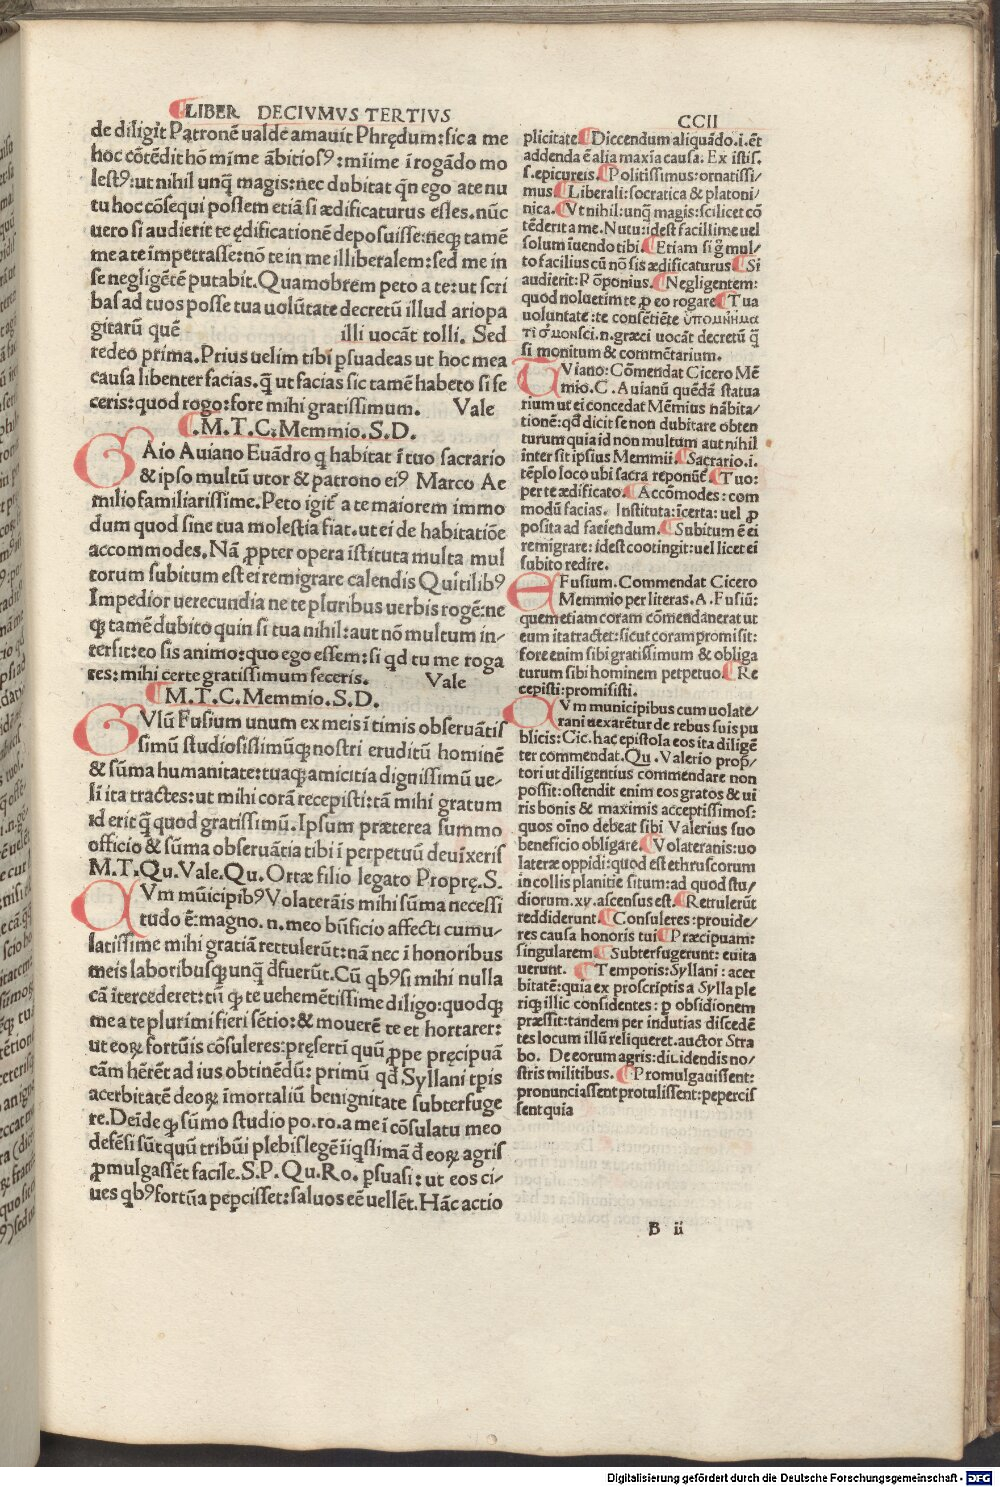 LIBER DECIVMVS TERTIVS
CCII
de diligit Patronē ualde amauit Phrędum: sic a me
hoc cōtēdit hō mime ābitiosꝰ: miime ī rogādo mo
lestꝰ: ut nihil unꝙ magis: nec dubitat qn ego a te nu
tu hoc cōsequi possem etiā si ædificaturus esses. nūc
uero si audierit te ędificationē deposuisse: neqꝫ tamē
me a te īmpetrasse: nō te in me illiberalem: sed me in
se negligētē putabit. Quamobrem peto a te: ut scri
bas ad tuos posse tua uolūtate decretū illud ariopa
gitarū quē illi uocāt tolli. Sed
redeo prima. Prius uelim tibi ꝑsuadeas ut hoc mea
causa libenter facias. ꝙ ut facias sic tamē habeto si fe
ceris: quod rogo: fore mihi gratissimum. Vale
.M.T.C. Memmio. S.D.
GAio Auiano Euādro q habitat ī tuo sacrario
& ipso multū utor & patrono eiꝰ Marco Ae
milio familiarissime. Peto igit a te maiorem immo
dum quod sine tua molestia fiat. ut ei de habitatiōe
accommodes. Nā ꝓpter opera īstituta multa mul
torum subitum est ei remigrare calendis Quītilibꝰ
Impedior uerecundia ne te pluribus uerbis rogē: ne
qꝫ tamē dubito quin si tua nihil: aut nō multum in-
tersit: eo sis animo: quo ego essem: si qd tu me roga
res: mihi certe gratissimum feceris. Vale
M.T.C. Memmio. S.D.
GVlū Fusium unum ex meis ītimis obseruātis
simū studiosissimūqꝫ nostri eruditū hominē
& sūma humanitate: tuaqꝫ amicitia dignissimū ue-
lī ita tractes: ut mihi corā recepisti: tā mihi gratum
id erit ꝙ quod gratissimū. Ipsum præterea summo
officio & sūma obseruātia tibi ī perpetuū deuīxeris
M.T. Qu. Vale. Qu. Ortæ filio legato Proprę. S.
CVm mūicipibꝰ Volaterāis mihi sūma necessi
tudo ē: magno. n. meo būficio affecti cumu-
latissime mihi gratiā rettulerūt: nā nec ī honoribus
meis laboribusqꝫ unꝙ dfuerūt. Cū qbꝰ si mihi nulla
cā ītercederet: tū qꝫ te uehemētissime diligo: quodqꝫ
me a te plurimi fieri sētio: & mouerē te et hortarer:
ut eoꝝ fortūis cōsuleres: pręserti quū ꝓpe pręcipuā
cām hērēt ad ius obtinēdū: primū qd Syllani tpis
acerbitatē deoꝝ īmortaliū benignitate subterfuge
re. Deīde qꝫ sūmo studio po. ro. a me ī cōsulatu meo
defēsi sūt quū tribūi plebis legē īiqssimā d eoꝝ agris
ꝓmulgassēt facile. S.P. Qu. Ro. ꝑsuasi: ut eos ci-
ues qbꝰ fortūa pepcisset: saluos eē uellēt. Hāc actio
plicitate Diccendum aliquādo. i. ēt
addenda ē alia maxīa causa. Ex istis.
s. epicureis. Politissimus: ornatissi-
mus Liberali: socratica & platoni-
nica. Vt nihil: unꝙ magis: scilicet cō
tēderit a me. Nutu: idest facillime uel
solum īnuendo tibi. Etiam si ꝗ̄ mul-
to facilius cū nō sis ædificaturus Si
audierit: Pōponius. Negligentem:
quod noluetim te ꝓ eo rogare Tua
uoluntate: te consētiēte ὑπομνημα
τισμον sci. n. græci uocāt decretū ꝙ
si monitum & commētarium.
TViano: Cōmendat Cicero Mē
mio. C. Auianū quēdā statua
rium ut ei concedat Mēmius hābita-
tionē: qd dicit se non dubitare obten
turum quia id non multum aut nihil
inter sit ipsius Memmii. Sacrario. i.
tēplo loco ubi sacra reponūt. Tuo:
per te ædificato. Accōmodes: com
modū facias. Instituta: īcerta: uel ꝓ
posita ad faciendum. Subitum ē ei
remigrare: idest cootingit: uel licet ei
subito redire.
EFusium. Commendat Cicero
Memmio per literas. A. Fusiū:
quem etiam coram cōmendauerat ut
eum ita tractet: sicut coram promisit:
fore enim sibi gratissimum & obliga
turum sibi hominem perpetuo. Re
cepisti: promisisti.
CVm municipibus cum uolate-
rani uexarētur de rebus suis pu
blicis: Cic. hac epistola eos ita diligē
ter commendat. Qu. Valerio prop-
tori ut diligentius commendare non
possit: ostendit enim eos gratos & ui
ris bonis & maximis acceptissimos:
quos oīno debeat sibi Valerius suo
beneficio obligare. Volateranis: uo
lateræ oppidi: quod est ethruscorum
in collis planitie situm: ad quod stu-
diorum. xy. ascensus est. Retrulerūt
reddiderunt. Consuleres: prouide-
res causa honoris tui Præcipuam:
singularem Subterfugerunt: euita
uerunt. Temporis: Syllani: acer
bitatē: quia ex proscriptis a Sylla ple
riqꝫ illic considentes: ꝑ obsidionem
præssit: tandem per indutias discedē
tes locum illū reliqueret. auctor Stra
bo. De eorum agris: diuidendis no-
stris militibus. Promulgauissent:
pronunciassent protulissent: pepercis
sent quia
B ii
Digitalisierung gefördert durch die Deutsche Forschungsgemeinschaft - DFG